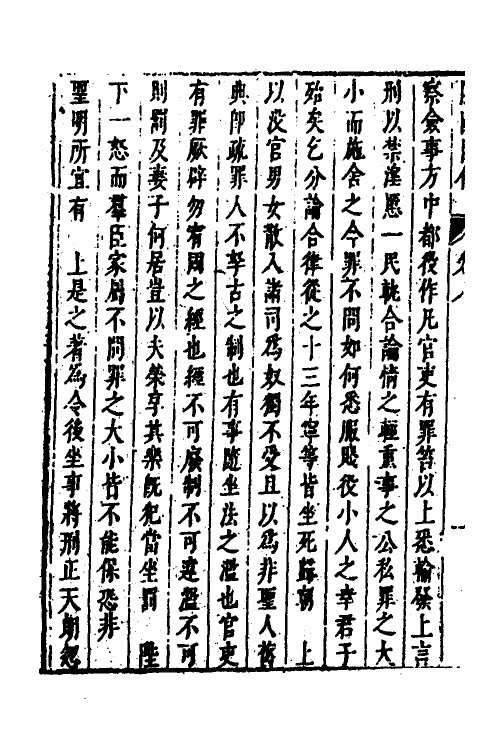 察僉事方中都役作凡官吏有罪笞以上悉輸發上言
刑以禁淫慝一民軌合論情之輕重事之公私罪之大
小而施舍之今罪不問如何悉服賤役小人之幸君子
殆矣乞分論合律從之十三年寧等皆坐死歸朝　上
以沒官男女散入諸司為奴獨不受且以為非聖人舊
典即疏罪人不孥古之制也有事隨坐法之濫也官吏
有罪厥辟勿宥周之經也經不可廢制不可違濫不可
則罰及妻子何居豈以夫榮享其樂既犯當坐罰　陛
下一怒而羣臣家屬不問罪之大小皆不能保恐非
聖明所宜有　上是之著為令後坐事將刑正天朗忽